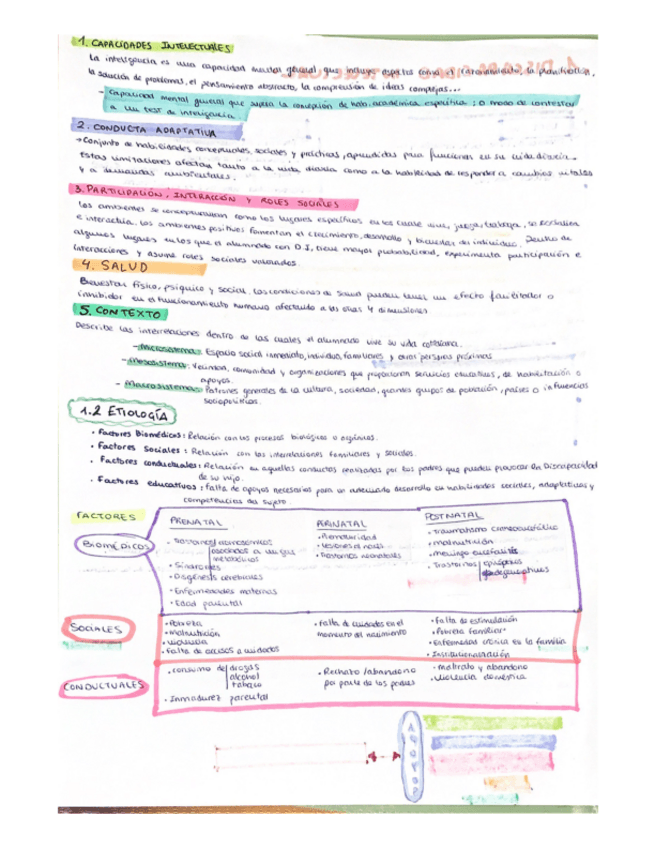 1. CAPACIDADES INTELECTUALES
La inteligencia es una capacidad mental general, que incluye aspectos como el razonamiento, la planificación,
la solución de problemas, el pensamiento abstracto, la comprensión de ideas complejas...
- Capacidad mental general que supera la concepción de hab. académica específica; o modo de contestar
a un test de inteligencia.
2. CONDUCTA ADAPTATIVA
→ Conjunto de habilidades conceptuales, sociales y prácticas, aprendidas para funcionar en su vida diaria.
Estas limitaciones afectan tanto a la vida diaria como a la habilidad de responder a cambios vitales
y a demandas ambientales.
3. PARTICIPACIÓN, INTERACCIÓN Y ROLES SOCIALES
Los ambientes se conceptualizan como los lugares específicos en los cuales vive, juega, trabaja, se socializa
e interactúa. Los ambientes positivos fomentan el crecimiento, desarrollo y bienestar del individuo. Dentro de
algunos lugares en los que el alumnado con D.I, tiene mayor probabilidad, experimenta participación e
interacciones y asume roles sociales valorados.
4. SALUD
Bienestar físico, psíquico y social. Las condiciones de salud pueden tener un efecto facilitador o
inhibidor en el funcionamiento humano afectando a las otras 4 dimensiones.
5. CONTEXTO
Describe las interrelaciones dentro de las cuales el alumnado vive su vida cotidiana.
- Microsistema: Espacio social inmediato, individuo, familiares y otras personas próximas
- Mesosistema: Vecindad, comunidad y organizaciones que proporcionan servicios educativos, de habilitación o
apoyos.
- Macrosistema: Patrones generales de la cultura, sociedad, grandes grupos de población, países o influencias
sociopolíticas.
1.2 ETIOLOGÍA
• Factores Biomédicos: Relación con los procesos biológicos u orgánicos.
• Factores Sociales: Relación con las interrelaciones familiares y sociales.
• Factores conductuales: Relación en aquellas conductas realizadas por los padres que pueden provocar la Discapacidad
de su hijo.
• Factores educativos: falta de apoyos necesarios para un adecuado desarrollo en habilidades sociales, adaptativas y
competencias del sujeto.
FACTORES
PRENATAL
PERINATAL
POSTNATAL
BIOMÉDICOS
• Trastornos cromosómicos
asociados a un gen
metabólicos
• Síndromes
• Disgénesis cerebrales
• Enfermedades maternas
• Edad parental
• Prematuridad
• Lesiones al nacer
• Trastornos neonatales
• Traumatismo craneoencefálico
• malnutrición
• meningoencefalitis
• Trastornos epilépticos
degenerativos
SOCIALES
• Pobreza
• malnutrición
• violencia
• Falta de acceso a cuidados
• Falta de cuidados en el
momento del nacimiento
• Falta de estimulación
• Pobreza familiar
• Enfermedad crónica en la familia
• Institucionalización
CONDUCTUALES
• consumo de drogas
alcohol
tabaco
• Inmadurez parental
• Rechazo/abandono
por parte de los padres
• maltrato y abandono
• Violencia doméstica
APOYOS